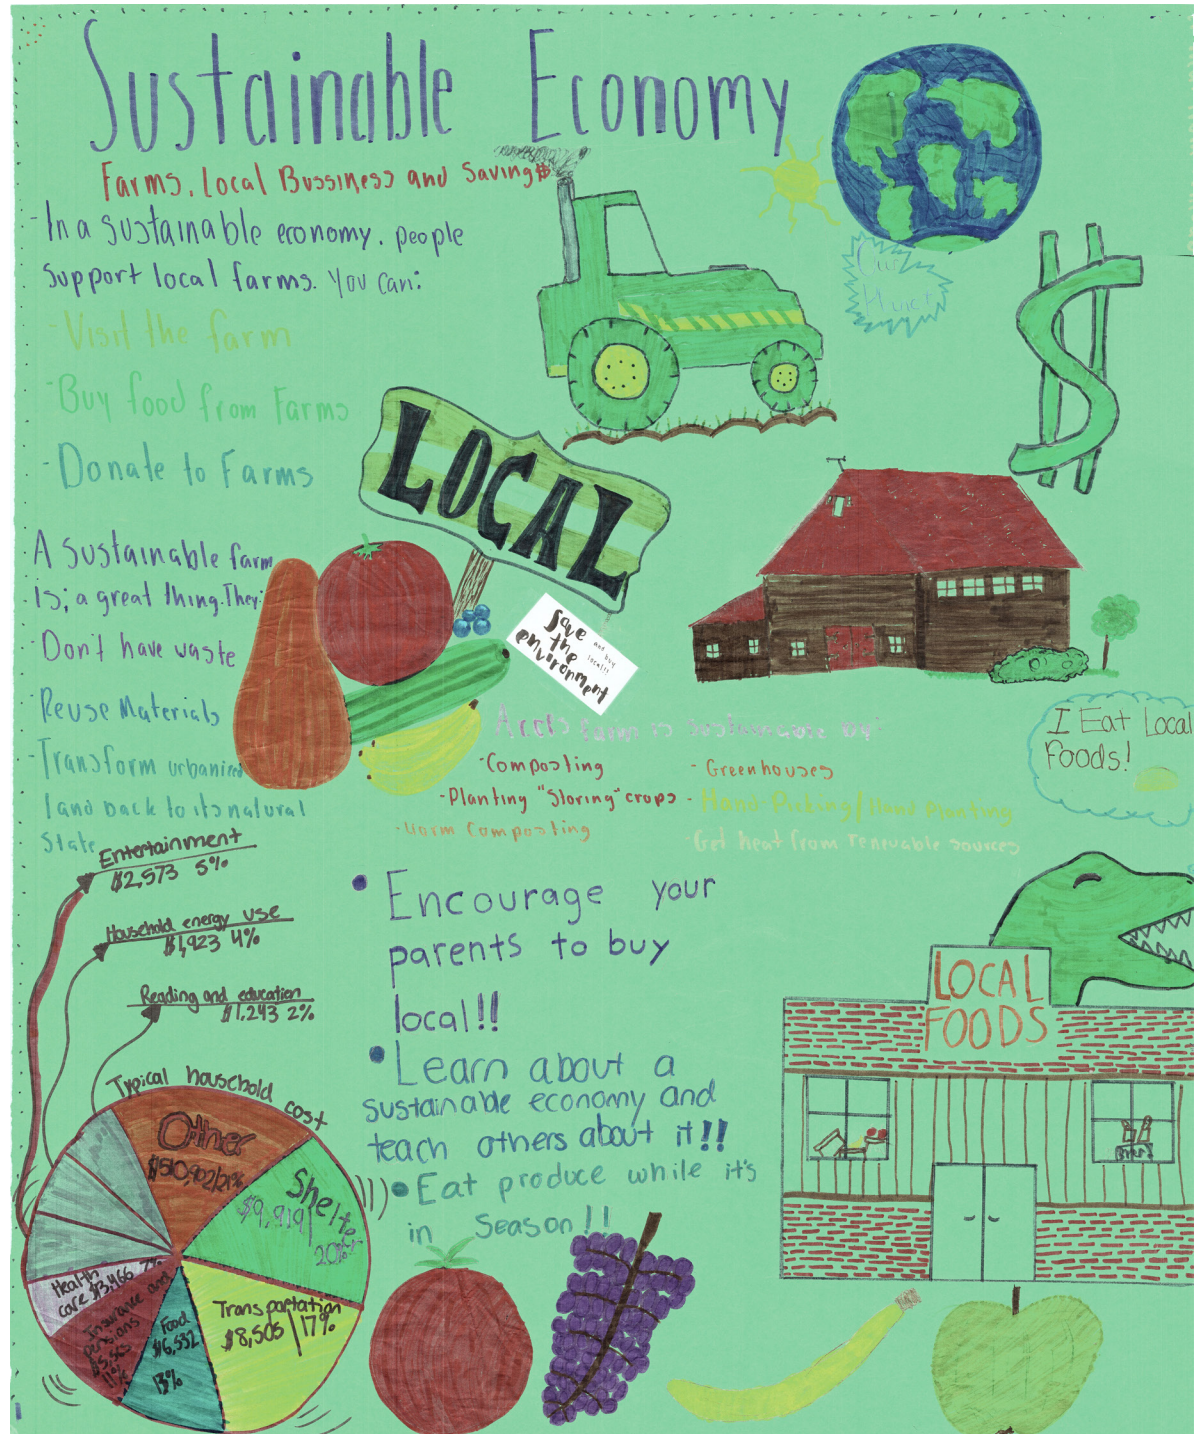 Sustainable Economy
Farms, Local Bussiness and Saving$
-In a sustainable economy, people
support local farms. You can:
-Visit the farm
-Buy food from Farms
-Donate to Farms
Our
Planet
LOCAL
A sustainable farm
is; a great thing. They:
-Don't have waste
-Reuse Materials
-Transform urbanized
land back to its natural
State
Save
the
environment
and buy
local!!
farm is sustainable by:
-Composting
-Planting "Storing" crops
-Worm Composting
-Greenhouses
-Hand-Picking/Hand Planting
Get heat from renewable sources
I Eat Local
Foods!
Entertainment
$2,573 5%
Household energy use
$1,923 4%
Reading and education
$1,243 2%
Typical household cost
Other
21%
Shelter
$9,919|
20%
Transportation
$8,505 | 17%
Food
$6,532
13%
Insurance and
pensions
11%
Health
care $3,466 7%
• Encourage your
parents to buy
local!!
• Learn about a
sustainable economy and
teach others about it!!
• Eat produce while it's
in season!!
LOCAL
FOODS